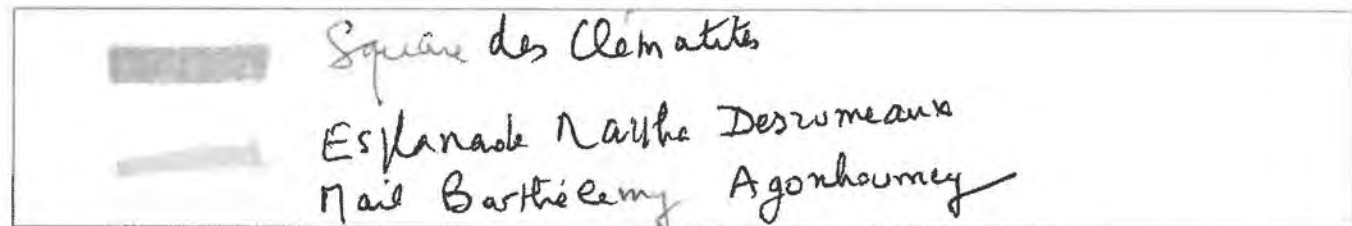 Square des Clématites
Esplanade Martha Desrumeaux
Mail Barthélemy Agonhoumey